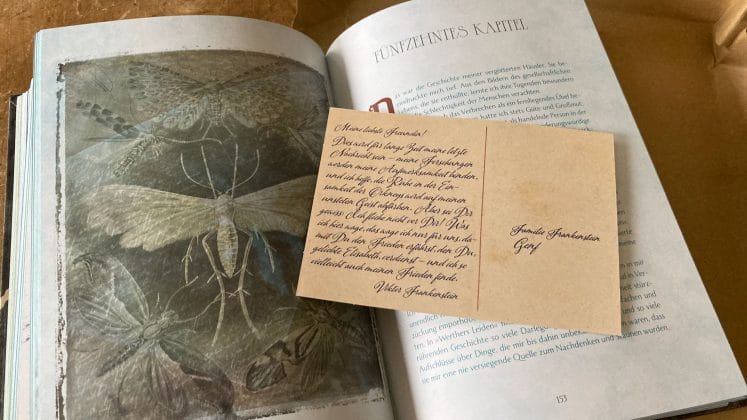 FÜNFZEHNTES KAPITEL
Das war die Geschichte meiner vergötterten Häusler. Sie be-
eindruckte mich tief. Aus den Bildern des gesellschaftlichen
Lebens, die sie enthüllte, lernte ich ihre Tugenden bewundern
Schlechtigkeit der Menschen verachten.
das Verbrechen als ein fernliegendes Übel be-
hatte ich stets Güte und Großmut,
als handelnde Person in der
Meine liebste Freundin!
Dies wird für lange Zeit meine letzte
Nachricht sein – meine Forschungen
werden meine Aufmerksamkeit binden,
und ich hoffe, die Ruhe in der Ein-
samkeit der Orkneys wird auf meinen
unsteten Geist abfärben. Aber sei Dir
gewiss: Ich fliehe nicht vor Dir! Was
ich hier wage, das wage ich nur für uns, da-
mit Du den Frieden erfährst, den Du,
geliebte Elisabeth, verdienst – und ich so
vielleicht auch meinen Frieden finde.
Viktor Frankenstein
Familie Frankenstein
Genf
unendlich
zückung emporhob
In »Werthers Leiden«
rührenden Geschichte so viele Darlegungen
Aufschlüsse über Dinge, die mir bis dahin unbekannt waren, dass
sie mir eine nie versiegende Quelle zum Nachdenken und Staunen wurden.
153